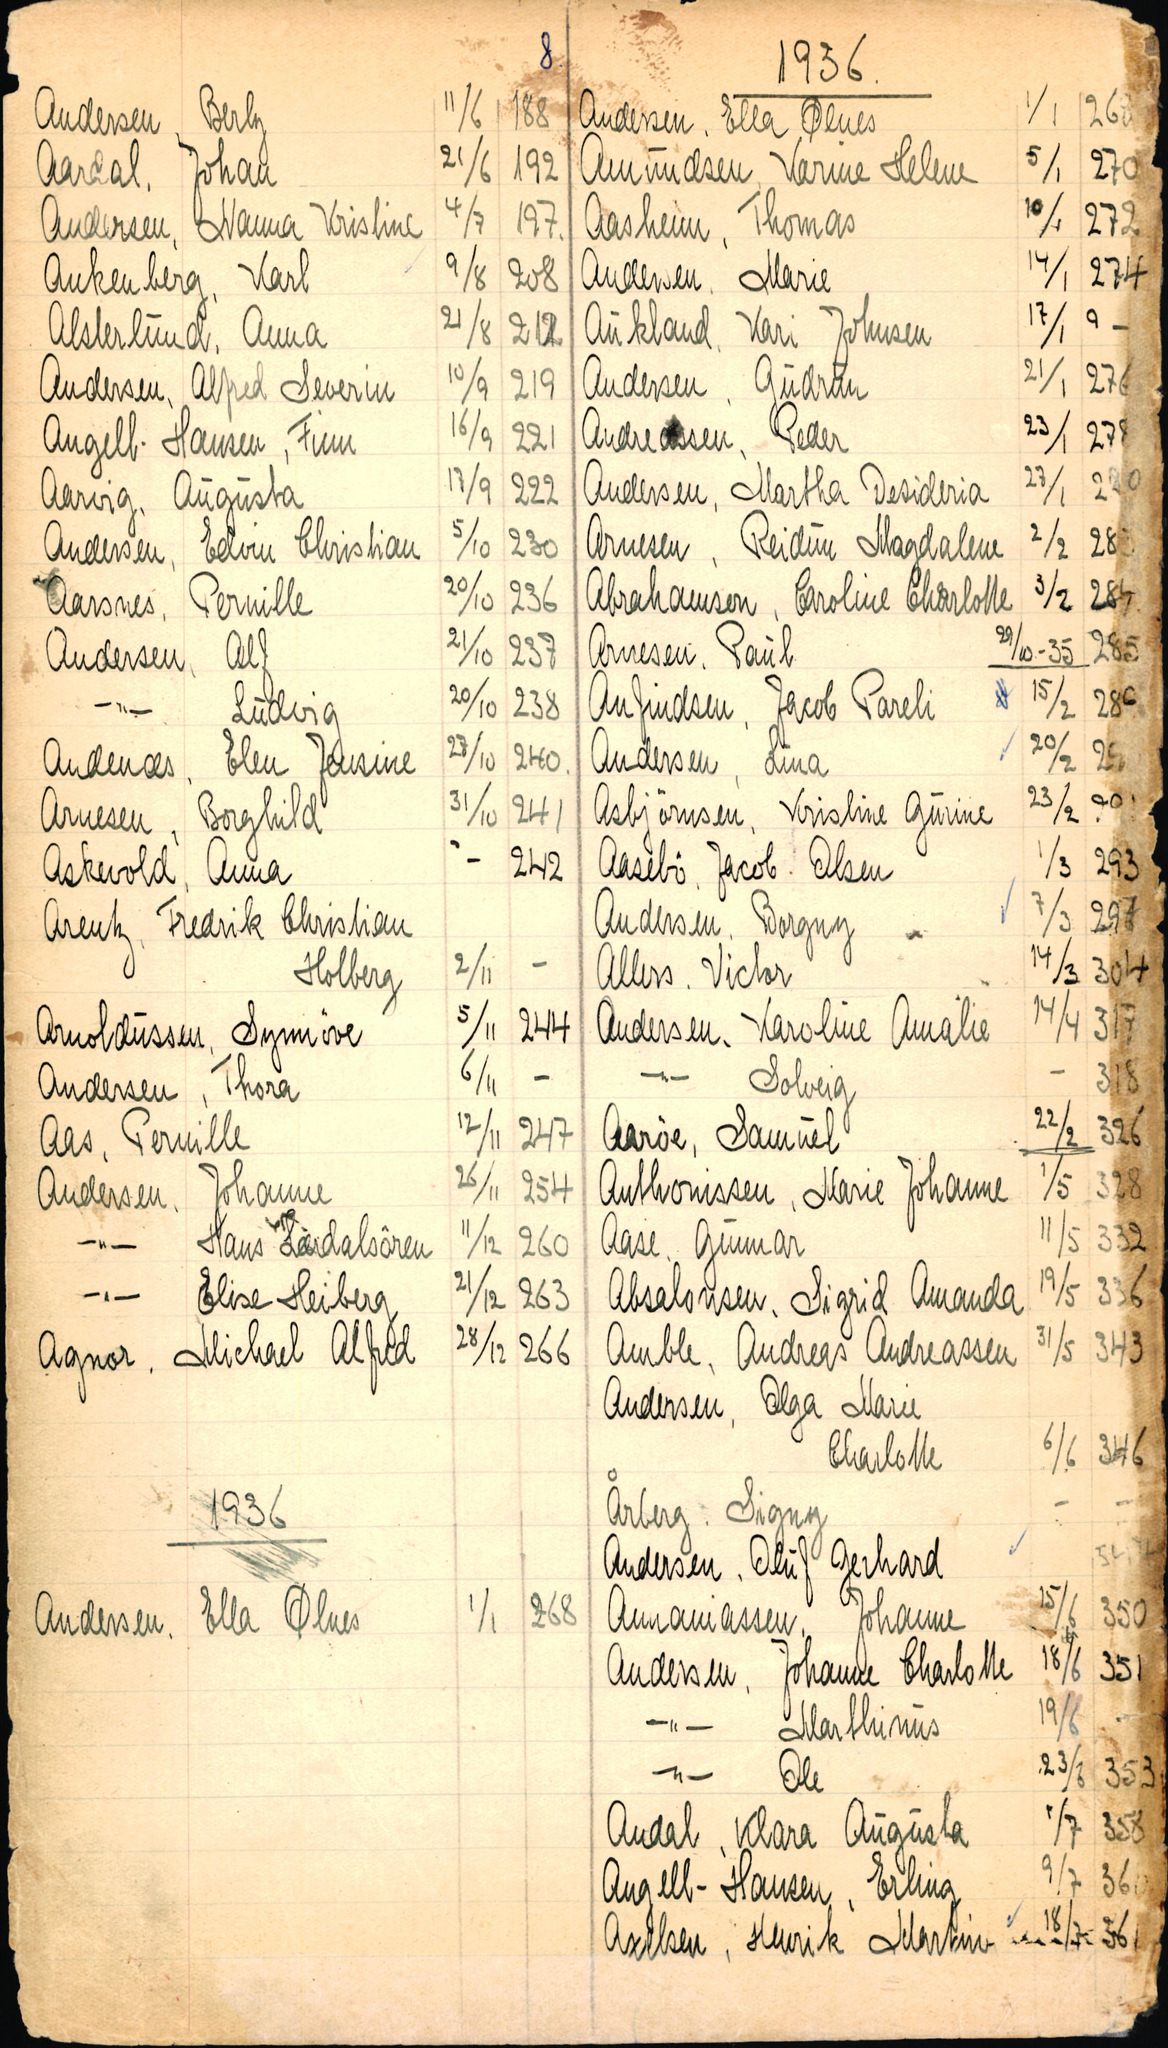 8.
Andersen, Berly 11/6 188
Aardal, Johan 21/6 192
Andersen, Nanna Kristine 4/7 197.
Ankenberg, Karl 9/8 208
Alsterlund, Anna 21/8 212
Andersen, Alfred Severin 10/9 219
Angell-Hansen, Finn 16/9 221
Aarvig, Augusta 17/9 222
Andersen, Edvin Christian 5/10 230
Aarsnes, Pernille 20/10 236
Andersen, Alf 21/10 237
-"- Ludvig 20/10 238
Andenæs, Elen Jensine 27/10 240.
Arnesen, Borghild 31/10 241
Askevold, Anna "- 242
Arentz, Fredrik Christian
Holberg 2/11 -
Arnoldussen, Synnöve 5/11 244
Andersen, Thora 6/11 -
Aas, Pernille 12/11 247
Andersen, Johanne 26/11 254
-"- Hans Lærdalsören 11/12 260
-"- Elise Heiberg 21/12 263
Agnor, Michael Alfred 28/12 266
1936
Andersen, Ella Ølnes 1/1 268
1936.
Andersen, Ella Ølnes 1/1 268
Amundsen, Karine Helene 5/1 270
Aasheim, Thomas 10/1 272
Andersen, Marie 14/1 274
Aukland, Kari Johnsen 17/1 -
Andersen, Gudrun 21/1 276
Andreassen, Peder 23/1 278
Andersen, Martha Desideria 27/1 280
Arnesen, Reidun Magdalene 2/2
Abrahamsen, Caroline Charlotte 3/2 284
Arnesen, Paul 29/10-35 285
Anfindsen, Jacob Pareli 15/2 286
Andersen, Lina 20/2
Asbjörnsen, Kristine Gurine 23/2
Aasebö, Jacob Olsen 1/3 293
Andersen, Borgny 7/3 297
Allers, Victor 14/3 304
Andersen, Karoline Amalie 14/4 317
-"- Solveig - 318
Aaröe, Samuel 22/2 326
Anthonissen, Marie Johanne 1/5 328
Aase, Gunnar 11/5 332
Absalonsen, Sigrid Amanda 19/5 336
Amble, Andreas Andreassen 31/5 343
Andersen, Olga Marie
Charlotte 6/6 346
Årberg, Signy - -
Andersen, Oluf Gerhard
Annaniassen, Johanne 15/6 350
Andersen, Johanne Charlotte 18/6 351
-"- Marthinus 19/6 -
-"- Ole 23/6 353
Andal, Klara Augusta 1/7 358
Angell-Hansen, Erling 9/7 360
Axelsen, Henrik Martin 18/7 361